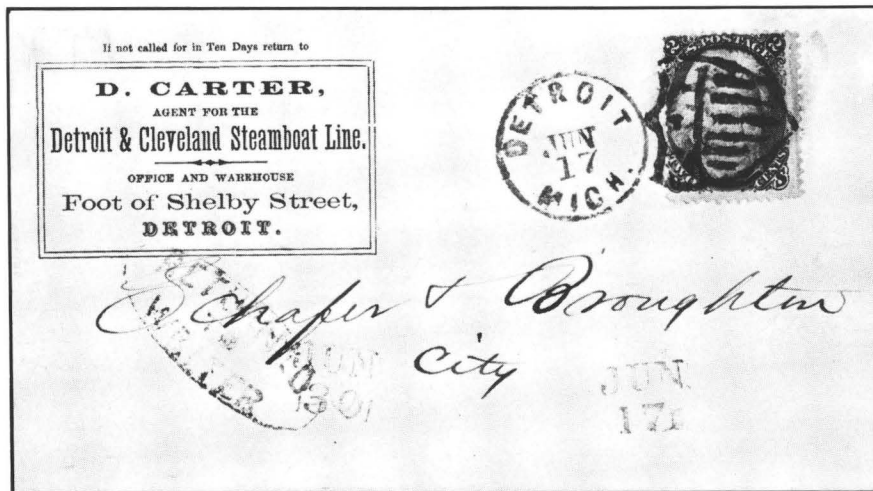 If not called for in Ten Days return to
D. CARTER,
AGENT FOR THE
Detroit & Cleveland Steamboat Line.
OFFICE AND WAREHOUSE
Foot of Shelby Street,
DETROIT.
DETROIT
JUN
17
MICH.
POSTAGE
Schafer & Broughton
City
RETURNED
TO
WRITER
JUN
30
JUN
17